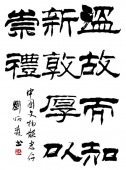 溫故而知
新敦厚以
崇禮
中国文物
劉炳森書